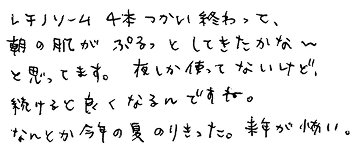 レチノソーム 4本つかい終わって、
朝の肌が ぷるっとしてきたかな〜
と思ってます。 夜しか使ってないけど、
続けると良くなるんですね。
なんとか今年の夏のりきった。来年が怖い。